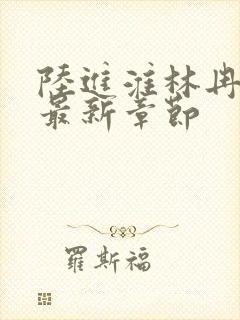 陸進淮林冉
最新章節
羅斯福